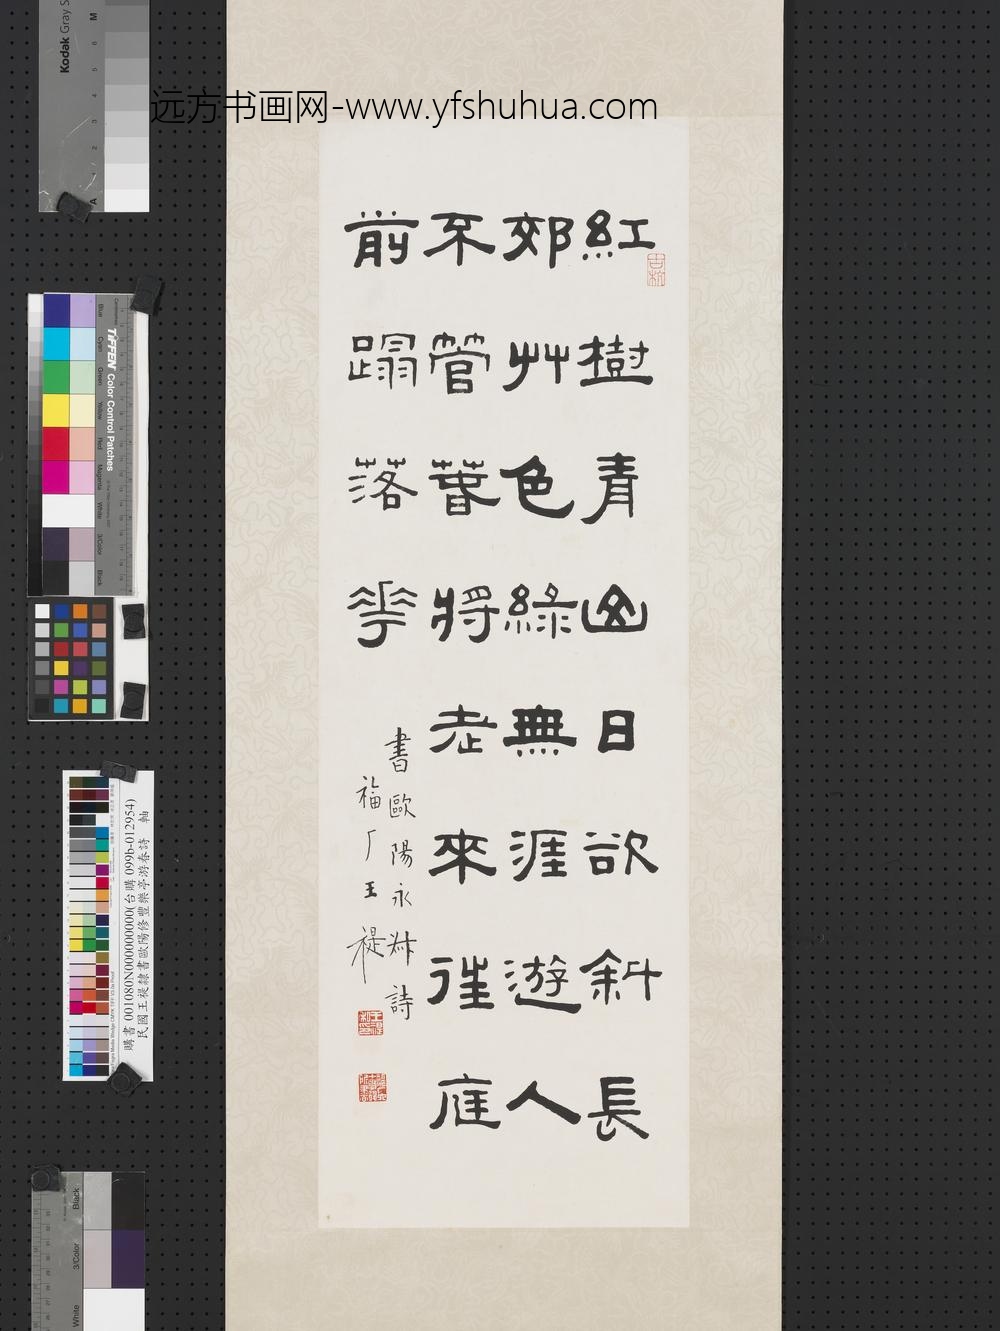 远方书画网-www.yfshuhua.com
紅樹青山日欲斜長
郊艸色綠無涯遊人
不管萅將老來徃庭
前蹋落花
書歐陽永叔詩
福厂王禔
古杭
王禔私印
Kodak Gray S
M
6
5
4
3
2
A
TIFFEN Color Control Patches
Centimetres
Blue
Cyan
Green
Yellow
Red
Magenta
White
3/Color
Black
購書 001080N000000000(台購 099b-012954)
民國王禔隸書歐陽修豐樂亭游春詩　軸
Black
3/Color
White